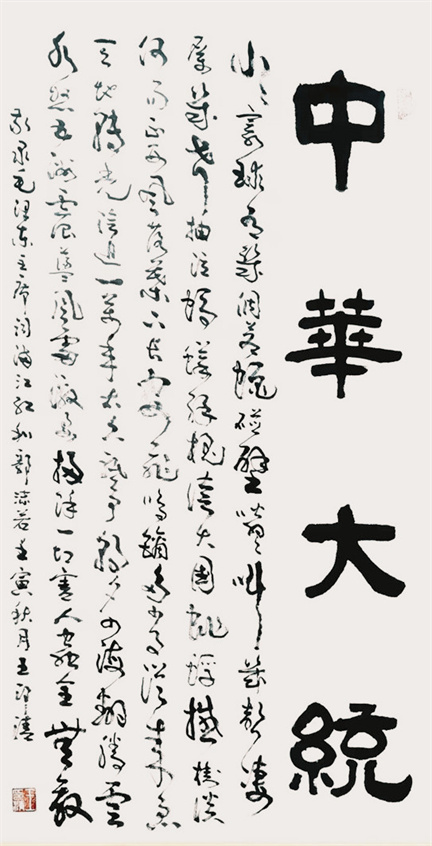 中華大統
小小寰球有幾個蒼蠅碰壁嗡嗡叫幾聲凄
厲幾聲抽泣螞蟻緣槐誇大國蚍蜉撼樹談
何易正西風落葉下長安飛鳴鏑多少事從來急
天地轉光陰迫一萬年太久只争朝夕四海翻騰雲
水怒五洲震蕩風雷激要掃除一切害人蟲全無敵
敬录毛泽东主席词满江红和郭沫若壬寅秋月王